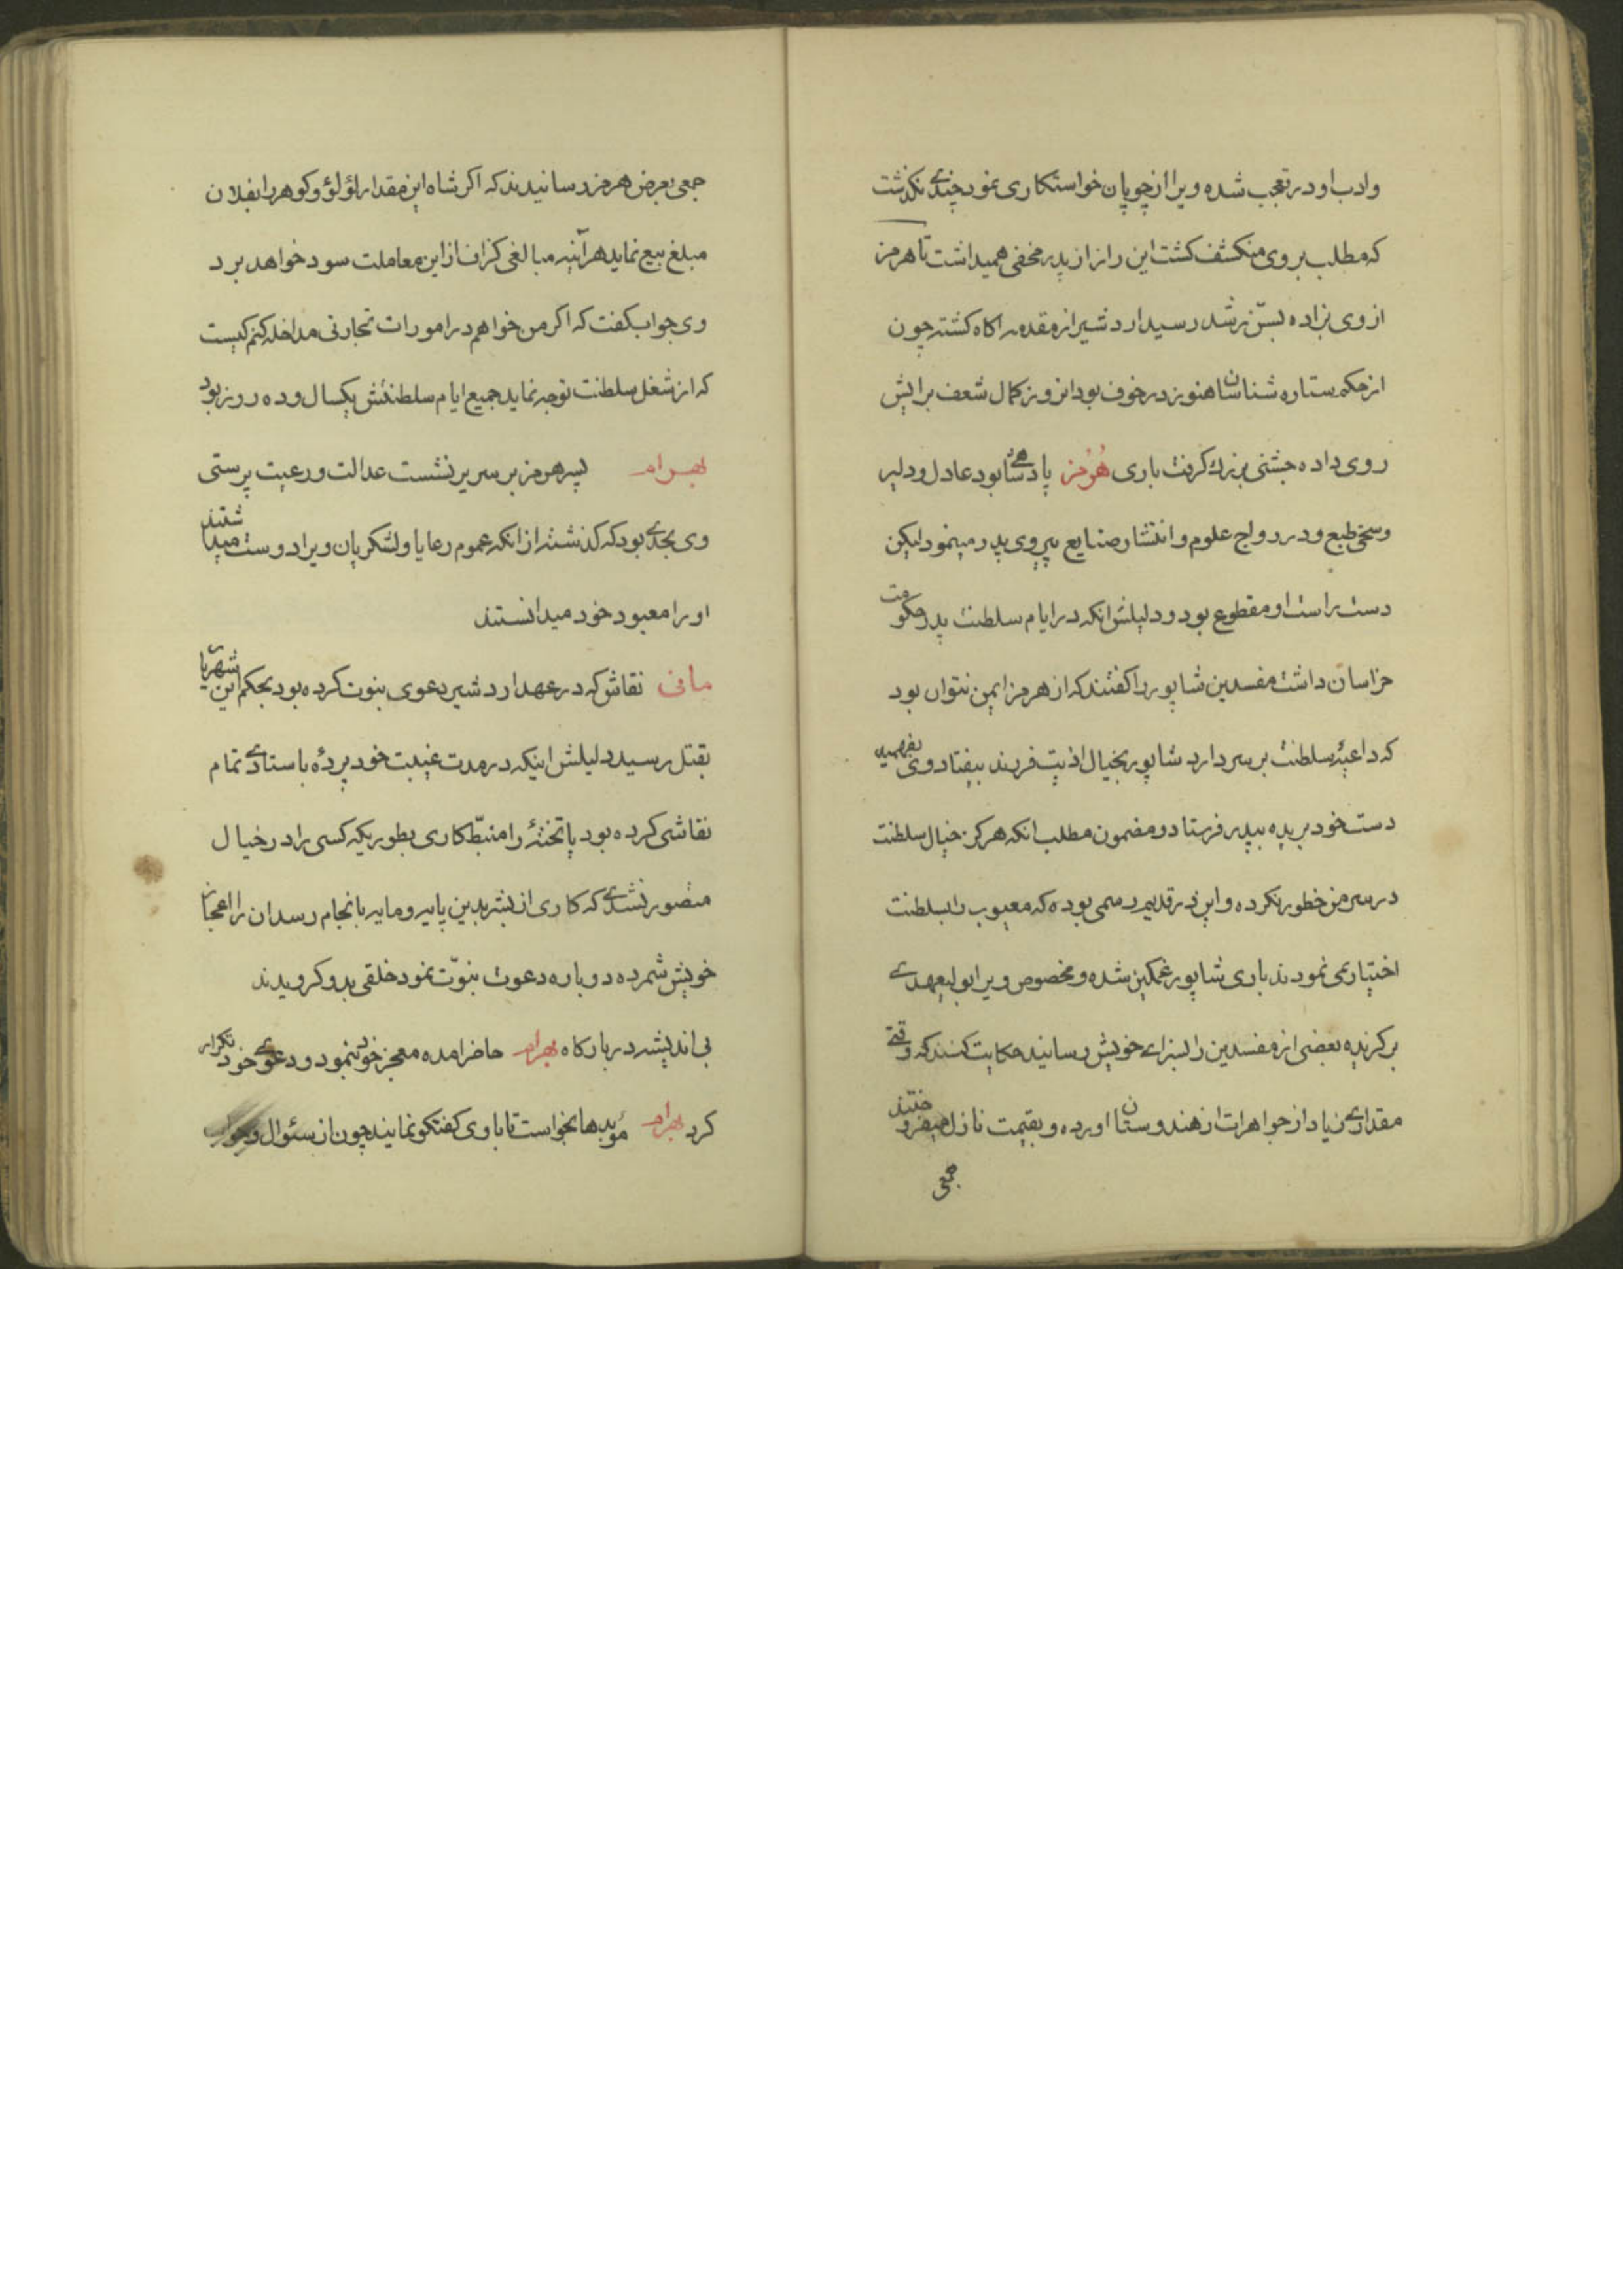 وادب او در تعجب شده ویرا از چوپان خواستکاری نمود چندی نکذشت
که مطلب بروی منکشف کشت این راز از پدر مخفی همیداشت تا هرمز
از وی بزاده بسنّ رشد رسید اردشیر از مقدمه اکاه کشته چون
از حکم ستاره شناسان هنوز در خوف بود انروز کمال شعف برایش
روی داده جشنی بزرك کرفت باری هُرمُز پادشاهی بود عادل و دلیر
وسخی طبع و در رواج علوم و انتشار صنایع پیروی پدر مینمود لیکن
دست راست او مقطوع بود و دلیلش انکه در ایام سلطنت پدر حکومت
خراسان داشت مفسدین شاپور را کفتند که از هرمز ایمن نتوان بود
که داعیهٔ سلطنت بر سر دارد شاپور بخیال اذیت فرزند بیفتاد وی بفهمیده
دست خود بریده بپدر فرستاد و مضمون مطلب انکه هرکز خیال سلطنت
در سر من خطور نکرده و این در قدیم رسمی بوده که معیوب را بسلطنت
اختیاری نمودند باری شاپور غمکین شده و مخصوص ویرا بولیعهدی
برکزیده بعضی از مفسدین را بسزای خویش رسانید حکایت کنند که وقتی
مقداری زیاد از جواهرات از هندوستان اورده و بقیمت نازل میفروختند
جمعی
جمعی بعرض هرمز رسانیدند که اکر شاه این مقدار لؤلؤ و کوهر را بفلان
مبلغ بیع نماید هرآینه مبالغی کزاف از این معاملت سود خواهد برد
وی جواب کفت که اکر من خواهم در امورات تجارتی مداخله کنم کیست
که از شغل سلطنت توجه نماید جمیع ایام سلطنتش یکسال و ده روز بود
بهرام پسر هرمز بر سریر نشست عدالت و رعیت پرستی
وی بحدی بود که کذشته از انکه عموم رعایا و لشکریان ویرا دوست میداشتند
او را معبود خود میدانستند
مانی نقاش که در عهد اردشیر دعوی نبوت کرده بود بحکم این شهریار
بقتل رسید دلیلش اینکه در مدت غیبت خود پردهٔ باستادی تمام
نقاشی کرده بود یا تختهٔ را منبّط کاری بطوریکه کسی را در خیال
متصور نشدی که کاری از بشر بدین پایه و مایه بانجام رسد ان را اعجاز
خویش شمرده دوباره دعوت نبوّت نمود خلقی بدو کرویدند
بی اندیشه در بارکاه بهرام حاضر امده معجز خود بنمود و دعوی خود تکرار
کرد بهرام مؤبدها بخواست تا با وی کفتکو نمایند چون از سئوال و جواب